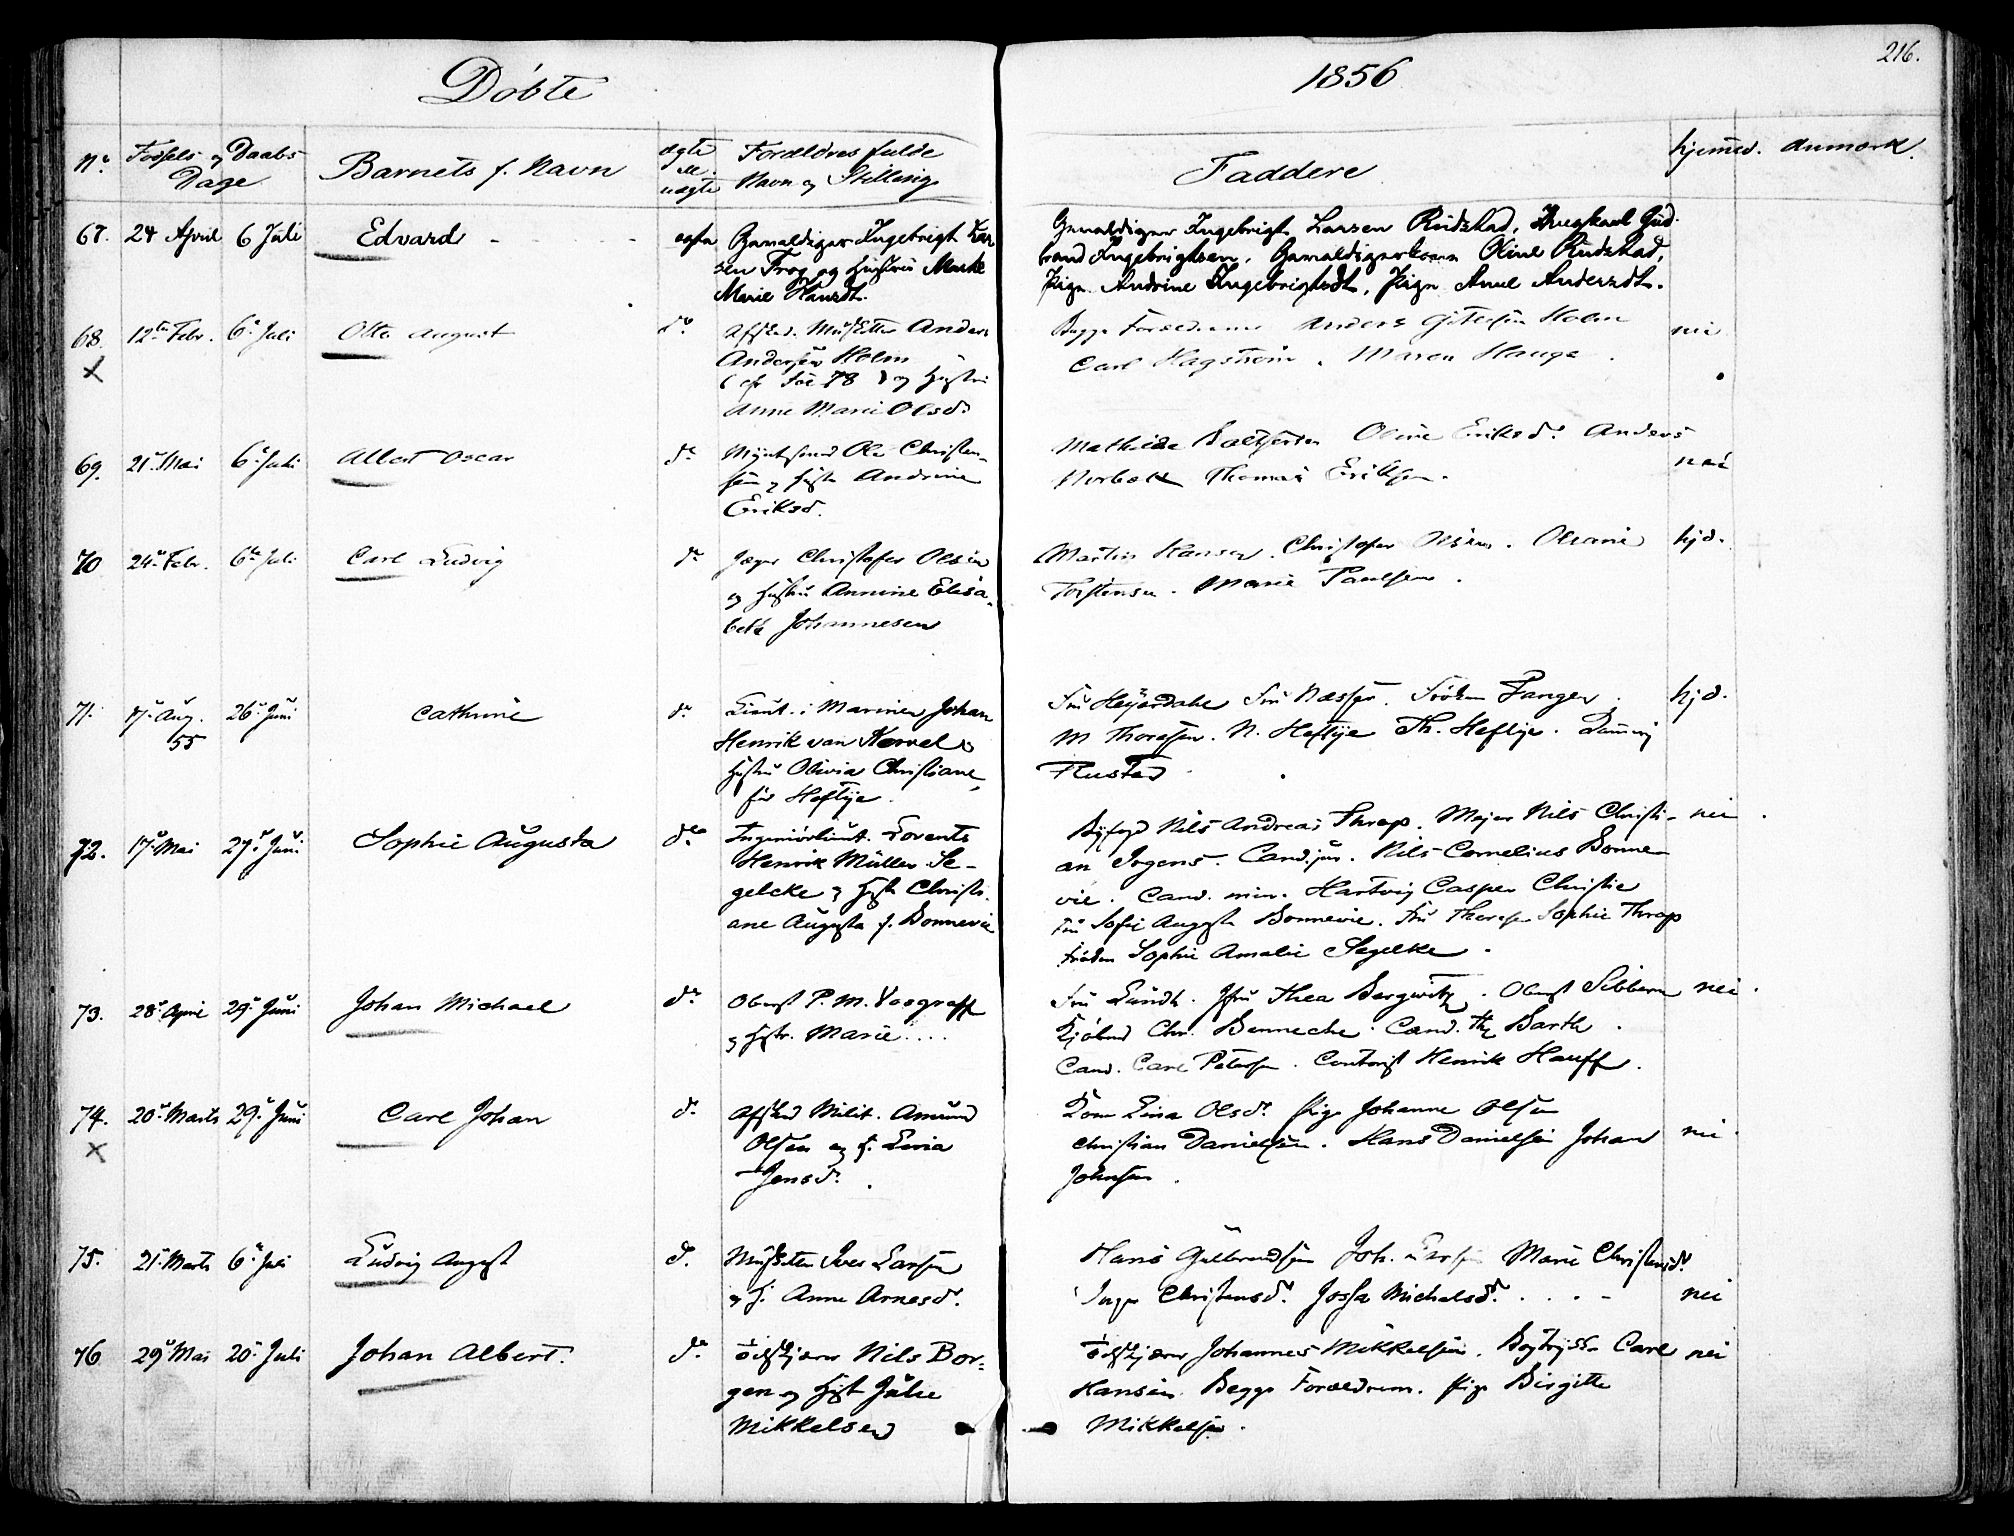 216.
Döbte 1856
No Födsels og Daabs Dage
Barnets f. Navn
ægte el. uægte
Forældres fulde
Navn og Stilling
Faddere
hjemmed. Anmærk.
67. 24 April 6 Juli Edvard ægte Gevaldiger Ingebrigt Lar
sen Trog og Hustru Marthe
Marie Hansdt.
Gevaldiger Ingebrigt Larsen Rudstad, Gud
brand Ingebrigtsen, Gevaldigerkone Oline Rudstad,
Pige Andrine Ingebrigtsdt, Pige Anne Andersdt.
68. 12te Febr. 6te Juli Otto August do Afsked. Musketer Anders
X
Andersen Holm
og Hustru
Anne Marie Olsd.
Begge Forældrene Anders Holm
Carl Hagström. Maren Hauge. nei
69. 21 Mai 6 Juli Albert Oscar do Ole Christen-
sen og Andrine
Eriksd.
Mathilde Oline Eriksd. Anders
Norbek Thomas Eriksen. nei
70 24 Febr. 6te Juli Carl Ludvig do Jæger Christofer Olsen
og Hustru Annine Elisa-
beth Johannesen
Martin Hansen. Christofer Olsen. Oleane hjd.
Torstensen. Marie Paulsen.
71. 17 Aug. 26 Juni Cathrine do Lieut. i Marinen Johan
55
Henrik van Kervel og
Hustru Olivia Christiane
före Heftye.
Fru Heyerdahl Fru Næsser. Fröken Fanger. hjd.
M Thoresen. N. Heftye Th. Heftye.
Flustad
72. 17 Mai 27 Juni Sophie Augusta do Ingeniörlieut. Lorents
Henrik Müller Se-
gelcke og Christi
ane Augusta f. Bonnevie
Byfogd Nils Andreas Thrap. Major Nils Christi- nei.
an Irgens. Cand. jur. Nils Cornelius Bonne-
vie. Cand. min. Hartvig Casper Christie
Fru Sofie Augusta Bonnevie. Fru Therese Sophie Thrap
Fröken Sophie Amalie Segelke.
73. 28 April 29 Juni Johan Michael do Oberst P. M. Voograff
og Hstr. Marie ....
Fru Lundh. Jfru Thea Bergwitz. Oberst Sibbern nei.
Kjöbmd Chr. Benneche. Cand. Th. Barth.
Cand. Carl Petersen. Contorist Henrik Hauff.
74. 20 Marts 29 Juni Carl Johan do Afsked Milit. Amund
X
Olsen og H. Lovia
Jensd.
Kone Lina Olsd. Pige Johanne Olsen
Christian Danielsen. Hans Danielsen Johan nei.
Johnsen.
75. 21 Marts 6 Juli Ludvig August do Musketer Iver Larsen
og H. Anne Arnesd.
Hans Gulbrandsen Joh. Marie Christensd.
Inger Christensd. Josefa Michelsd. .... nei
76 29 Mai 20 Juli Johan Albert. do Nils Bor-
gen og Hust Julie
Mikkelsen
Johannes Mikkelsen. Bogtrykker Carl nei
Hansen. Begge Forældrene. Pige Birgitte
Mikkelsen.